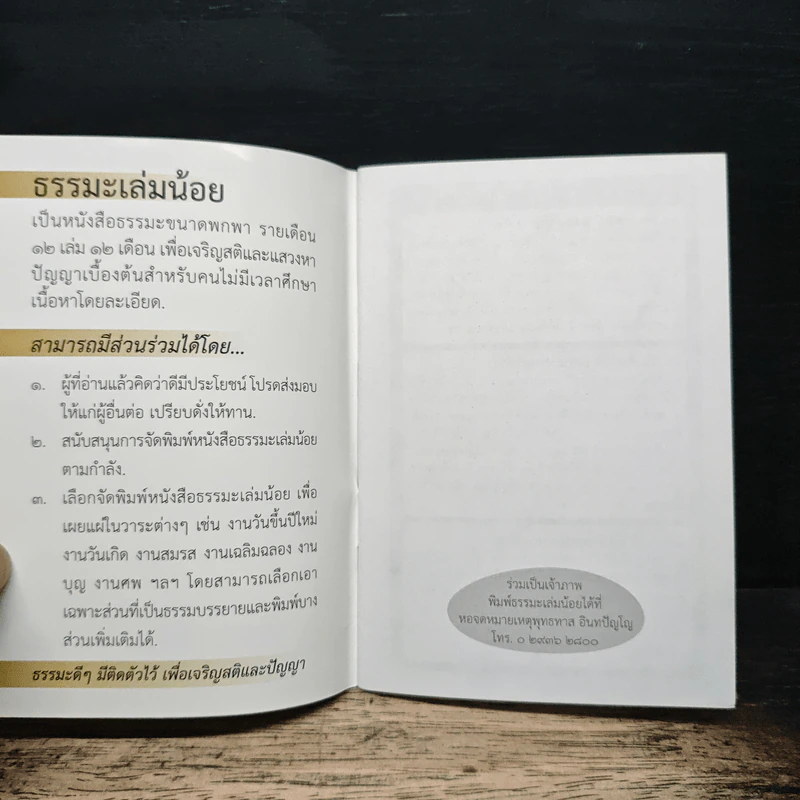 ธรรมะเล่มน้อย
เป็นหนังสือธรรมะขนาดพกพา รายเดือน
๑๒ เล่ม ๑๒ เดือน เพื่อเจริญสติและแสวงหา
ปัญญาเบื้องต้นสำหรับคนไม่มีเวลาศึกษา
เนื้อหาโดยละเอียด.
สามารถมีส่วนร่วมได้โดย...
๑. ผู้ที่อ่านแล้วคิดว่าดีมีประโยชน์ โปรดส่งมอบ
ให้แก่ผู้อื่นต่อ เปรียบดั่งให้ทาน.
๒. สนับสนุนการจัดพิมพ์หนังสือธรรมะเล่มน้อย
ตามกำลัง.
๓. เลือกจัดพิมพ์หนังสือธรรมะเล่มน้อย เพื่อ
เผยแผ่ในวาระต่างๆ เช่น งานวันขึ้นปีใหม่
งานวันเกิด งานสมรส งานเฉลิมฉลอง งาน
บุญ งานศพ ฯลฯ โดยสามารถเลือกเอา
เฉพาะส่วนที่เป็นธรรมบรรยายและพิมพ์บาง
ส่วนเพิ่มเติมได้.
ธรรมะดีๆ มีติดตัวไว้ เพื่อเจริญสติและปัญญา
ร่วมเป็นเจ้าภาพ
พิมพ์ธรรมะเล่มน้อยได้ที่
หอจดหมายเหตุพุทธทาส อินทปัญโญ
โทร. ๐ ๒๙๓๖ ๒๘๐๐